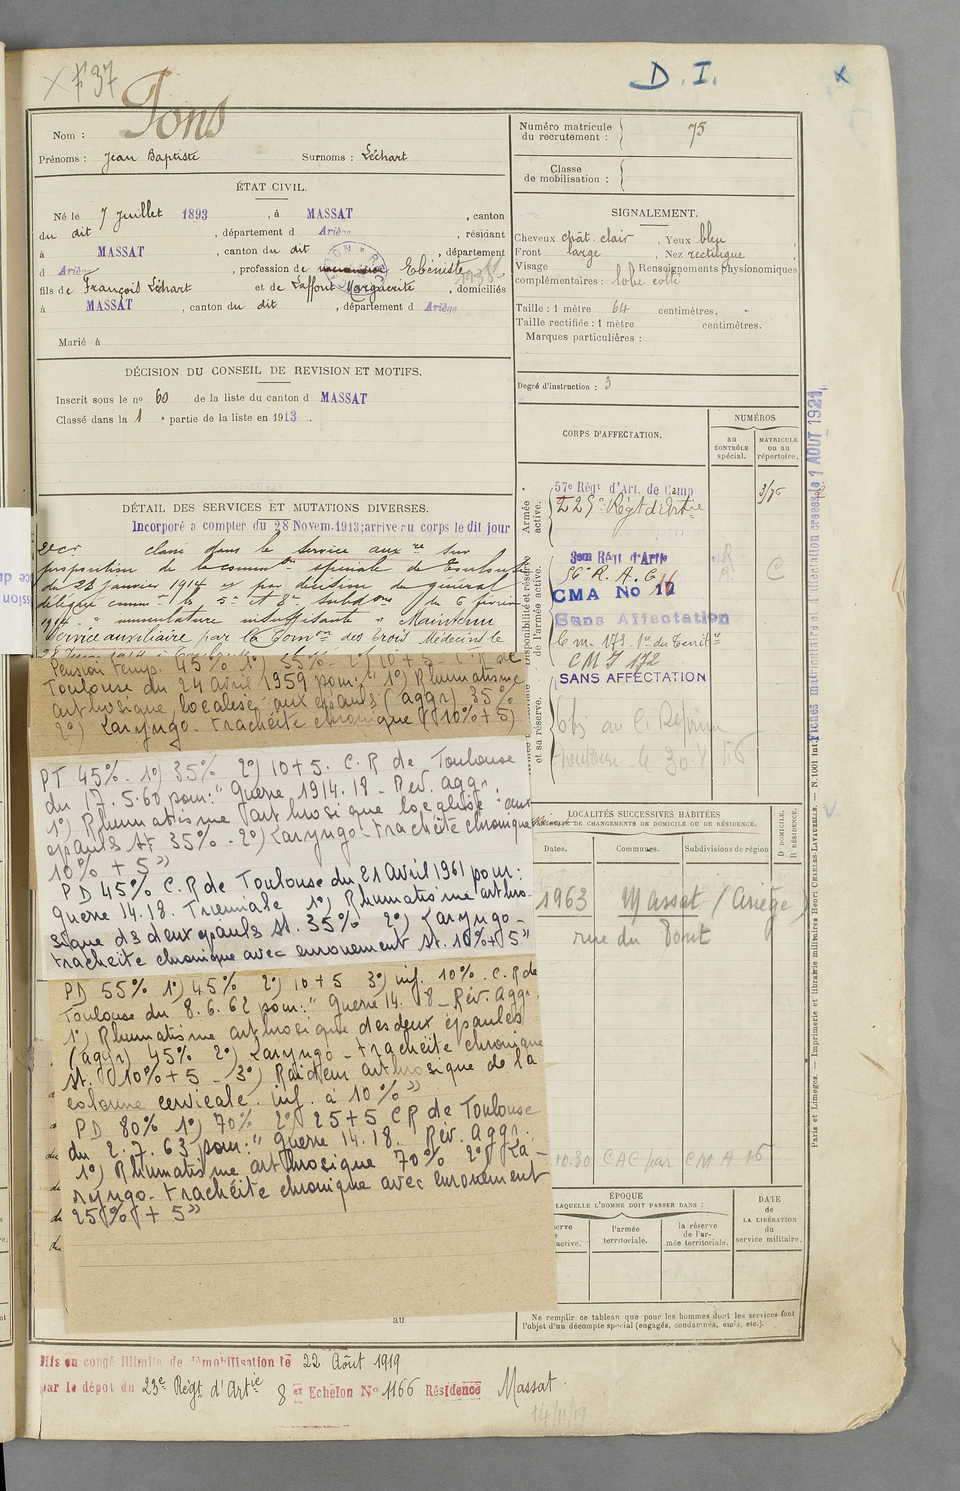 X F 37
D. I.
x
Nom : Pons
Prénoms : Jean Baptiste Surnoms : Léchart
Numéro matricule du recrutement : 75
Classe de mobilisation :
ÉTAT CIVIL.
Né le 7 Juillet 1893, à MASSAT, canton
du dit, département d Ariège, résidant
à MASSAT, canton du dit, département
d Ariège, profession de Ebéniste
fils de François Léchart et de Laffont Marguerite, domiciliés
à MASSAT, canton du dit, département d Ariège
Marié à
SIGNALEMENT.
Cheveux chât. clair, Yeux bleu
Front large, Nez rectiligne
Visage Renseignements physionomiques
complémentaires : lobe collé
Taille : 1 mètre 64 centimètres.
Taille rectifiée : 1 mètre centimètres.
Marques particulières :
Degré d'instruction : 3
DÉCISION DU CONSEIL DE REVISION ET MOTIFS.
Inscrit sous le no 60 de la liste du canton d MASSAT
Classé dans la 1e partie de la liste en 1913.
DÉTAIL DES SERVICES ET MUTATIONS DIVERSES.
Incorporé à compter du 28 Novem. 1913; arrivé au corps le dit jour
classé dans le service auxre sur
proposition de la common spéciale de Toulouse
du 28 janvier 1914 et par décision du général
délégué commt les 5e et 8e subdons du 6 février
1914 "immutature insuffisante" Maintenu
service auxiliaire par la Comon des trois Médecins le
Pension temp. 45% 1°) 35% - 2°) 10+5 - C.R de
Toulouse du 24 avril 1959 pour: "1°) Rhumatisme
arthrosique localisé aux épauls (aggr) 35%
2°) Laryngo-trachéite chronique (10%+5)
PT 45%. 1°) 35% 2°) 10+5. C.R de Toulouse
du 17.5.60 pour: "Guerre 1914.18 - Rév. aggr.
1°) Rhumatisme arthrosique localisé aux
épauls st 35% - 2°) Laryngo-trachéite chronique
10% + 5"
PD 45% C.R de Toulouse du 21 Avril 1961 pour:
Guerre 14.18. Triennale 1°) Rhumatisme arthro-
sique ds deux épauls st. 35% 2°) Laryngo-
trachéite chronique avec enrouement st. 10%+5"
PD 55% 1°) 45% 2°) 10+5 3°) inf. 10%. C.R de
Toulouse du 8.6.62 pour: "Guerre 14.18 - Rév. Aggr.
1°) Rhumatisme arthrosique des deux épaules
(aggr) 45% 2°) Laryngo-trachéite chronique
st. 10%+5 - 3°) Raideur arthrosique de la
colonne cervicale. inf. à 10%"
PD 80% 1°) 70% 2°) 25+5 CR de Toulouse
du 2.7.63 pour: "Guerre 14.18. Rév. aggr.
1°) Rhumatisme arthrosique 70% 2°) La-
ryngo-trachéite chronique avec enrouement
25% + 5"
CORPS D'AFFECTATION.
NUMÉROS
au CONTRÔLE spécial.
MATRICULE ou au répertoire.
Armée active.
57e Régt d'Art. de Camp 3/75
Régt d'Artie
Disponibilité et réserve de l'armée active.
56e R. A. C
CMA No 17
Sans Affectation
C
CMI 172
SANS AFFECTATION
et sa réserve.
LOCALITÉS SUCCESSIVES HABITÉES
DE CHANGEMENTS DE DOMICILE OU DE RÉSIDENCE.
Dates. Communes. Subdivisions de région
D DOMICILE. R RÉSIDENCE.
1963 Massat (Ariège)
rue du Pont
10.30 CAC par CMA 16
ÉPOQUE
LAQUELLE L'HOMME DOIT PASSER DANS :
l'armée territoriale.
la réserve de l'armée territoriale.
DATE de LA LIBÉRATION du service militaire.
Ne remplir ce tableau que pour les hommes dont les services font
l'objet d'un décompte spécial (engagés, condamnés, exclus, etc.).
au
Mis en congé illimité de démobilisation le 22 Août 1919
par le dépôt du 23e Régt d'Artie 8 er Echelon No 1166 Résidence Massat.
14/11/19
Paris et Limoges. — Imprimerie et librairie militaires Henri CHARLES-LAVAUZELLE. — N. 1001